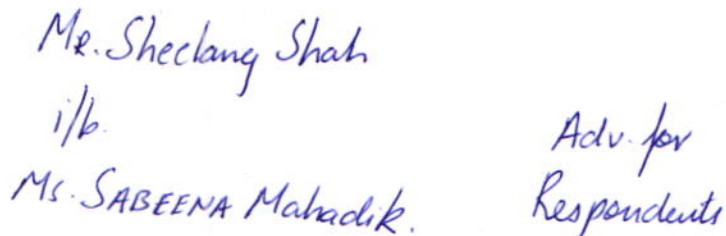 Mr. Sheelang Shah
i/b.
Ms. SABEENA Mahadik.
Adv. for
Respondents